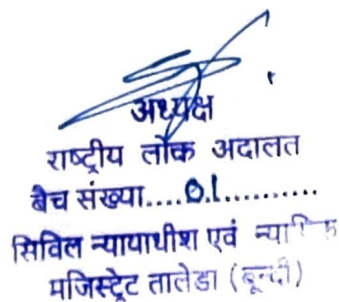 अध्यक्ष
राष्ट्रीय लोक अदालत
बैंच संख्या....0.1..........
सिविल न्यायाधीश एवं
मजिस्ट्रेट तालेडा (बून्दी)